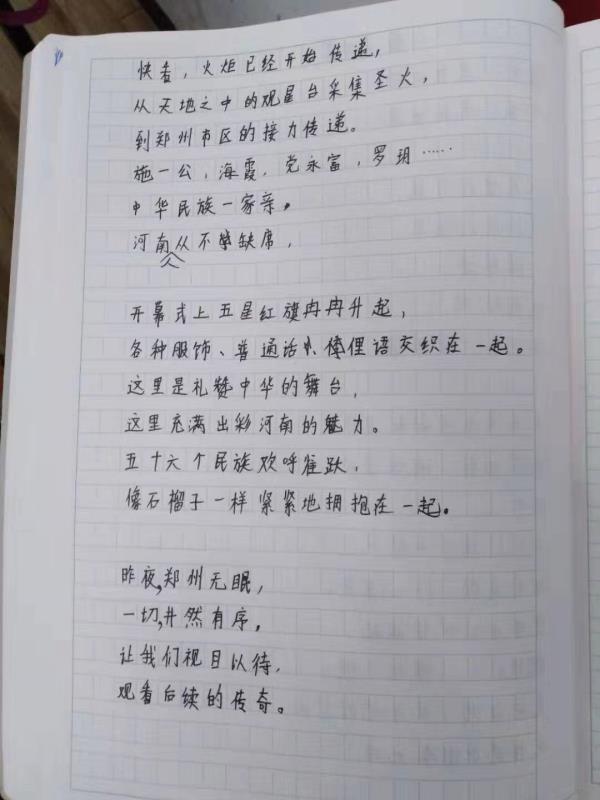 快看，火炬已经开始传递，
从天地之中的观星台采集圣火，
到郑州市区的接力传递。
施一公，海霞，党永富，罗玥……
中华民族一家亲。
河南人从不缺席，
开幕式上五星红旗冉冉升起，
各种服饰、普通话、俚语交织在一起。
这里是礼赞中华的舞台，
这里充满出彩河南的魅力。
五十六个民族欢呼雀跃，
像石榴子一样紧紧地拥抱在一起。
昨夜，郑州无眠，
一切，井然有序，
让我们视目以待，
观看后续的传奇。